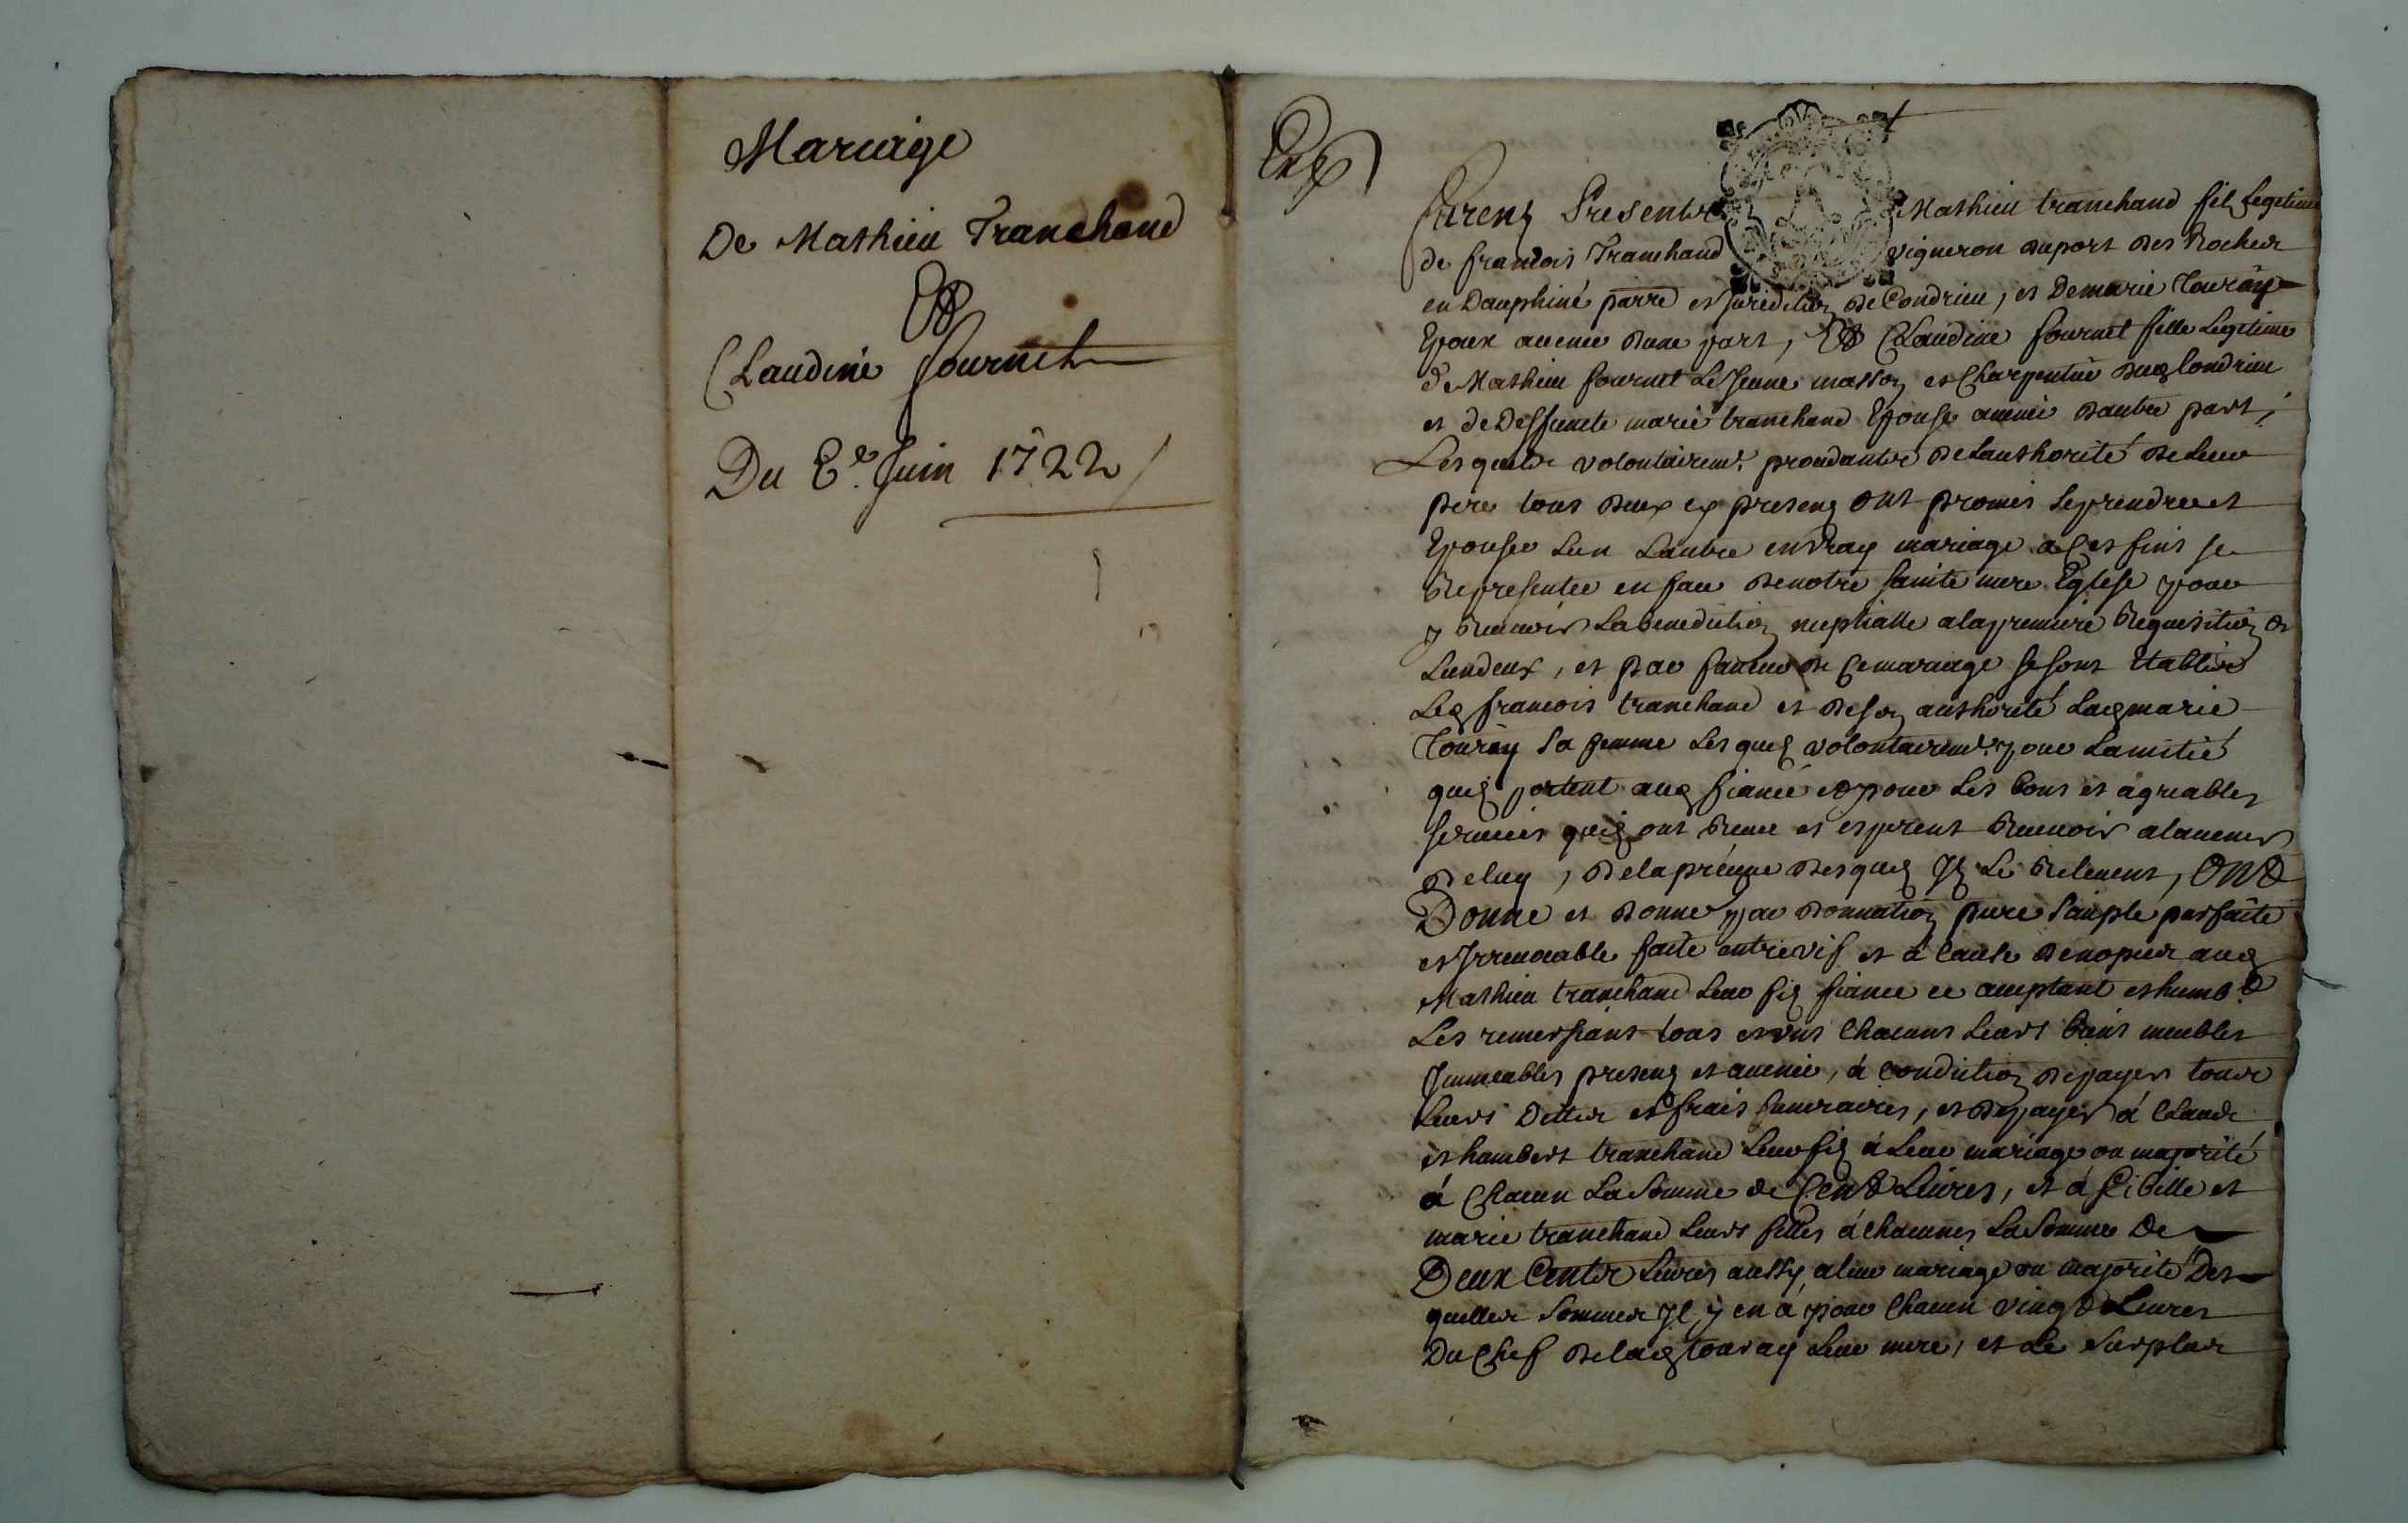 Mariage
De Mathieu Tranchand
Et
Claudine fournet
Du 8e Juin 1722
Exp
furent Presents Mathieu tranchand fils Legitime
de francois Tranchand vigneron du port des Roches
en Dauphiné parre et Juridiction de Condrieu, et de marie Touray
Epoux avenir dune part, Et Claudine fournet fille Legitime
de Mathieu fournet Le Jeune masson et Charpentier dud Condrieu
et de Deffuncte marie tranchand Epouse avenir dautre part,
Lesquels volontairemt. proceddants de Lauthorité de Leur
pere tous deux cy presens ont promis se prendre et
Epouser Lun Lautre en vray mariage a Ces fins se
Representer en face de notre sainte mere Eglise pour
y Recevoir La benediction nuptialle a la premiere Requisition de
Lundeux, et par faveur de Ce mariage se sont Etablis
Led francois tranchand et de son authorité Lad marie
Touray sa femme Lesquels volontairemt. pour Lamitié
quils portent aud fiancé et pour Les bons et agreables
services quils ont Receu et esperent Recevoir alavenir
de luy, de la preuve desquels Ils Le Relevent, Ont
Donne et donne par donnation pure simple parfaite
et Irrevocable faite entrevifs et à Cause de nopces aud
Mathieu tranchand Leur fils fiancé ce acceptant et humbt
Les remersiant tous et uns Chacuns Leurs biens meubles
Immeubles presens et avenir, à condiction de payer tous
Leurs Dettes et frais funeraires, et de payer à Claude
et humbert tranchand Leur fils à Leur mariage ou majorité
à Chacun La somme de Cent Livres, et à Sibille et
marie tranchand Leurs filles à chacunes La somme De
Deux Cents Livres aussy a leur mariage ou majorité Des
quelles sommes Il y en à pour Chacun vingt Livres
Du Chef de lad touray Leur mere, et Le surplus